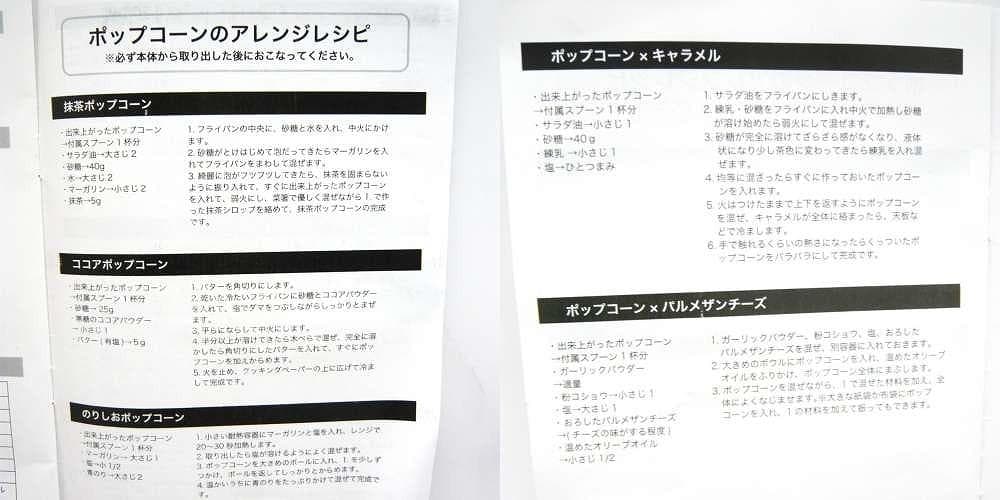 ポップコーンのアレンジレシピ
※必ず本体から取り出した後におこなってください。
抹茶ポップコーン
・出来上がったポップコーン
→付属スプーン1杯分
・サラダ油→大さじ2
・砂糖→40g
・水→大さじ2
・マーガリン→小さじ2
・抹茶→5g
1. フライパンの中央に、砂糖と水を入れ、中火にかけ
ます。
2. 砂糖がとけはじめて泡だってきたらマーガリンを入
れてフライパンをまわして混ぜます。
3. 綺麗に泡がフツフツしてきたら、抹茶を固まらない
ように振り入れて、すぐに出来上がったポップコーン
を入れて、弱火にし、菜箸で優しく混ぜながら1.で作
った抹茶シロップを絡めて、抹茶ポップコーンの完成
です。
ココアポップコーン
・出来上がったポップコーン
→付属スプーン1杯分
・砂糖→25g
・無糖のココアパウダー
→小さじ1
・バター(有塩)→5g
1. バターを角切りにします。
2. 乾いた冷たいフライパンに砂糖とココアパウダー
を入れて、指でダマをつぶしながらしっかりとまぜ
ます。
3. 平らにならして中火にします。
4. 半分以上が溶けてきたら木べらで混ぜ、完全に溶
かしたら角切りにしたバターを入れて、すぐにポッ
プコーンを加えからめます。
5. 火を止め、クッキングペーパーの上に広げて冷ま
して完成です。
のりしおポップコーン
・出来上がったポップコーン
→付属スプーン1杯分
・マーガリン→大さじ1
・塩→小1/2
・青のり→大さじ2
1. 小さい耐熱容器にマーガリンと塩を入れ、レンジで
20〜30秒加熱します。
2. 取り出したら塩が溶けるようによく混ぜます。
3. ポップコーンを大きめのボールに入れ、1.を少しず
つかけ、ボールを返してしっかりとからめます。
4. 温かいうちに青のりをたっぷりかけて混ぜて完成で
す。
ポップコーン×キャラメル
・出来上がったポップコーン
→付属スプーン1杯分
・サラダ油→小さじ1
・砂糖→40g
・練乳→小さじ1
・塩→ひとつまみ
1. サラダ油をフライパンにしきます。
2. 練乳・砂糖をフライパンに入れ中火で加熱し砂糖
が溶け始めたら弱火にして混ぜます。
3. 砂糖が完全に溶けてざらざら感がなくなり、液体
状になり少し茶色に変わってきたら練乳を入れ混
ぜます。
4. 均等に混ざったらすぐに作っておいたポップコーン
を入れます。
5. 火はつけたままで上下を返すようにポップコーン
を混ぜ、キャラメルが全体に絡まったら、天板な
どで冷まします。
6. 手で触れるくらいの熱さになったらくっついたポ
ップコーンをバラバラにして完成です。
ポップコーン×パルメザンチーズ
・出来上がったポップコーン
→付属スプーン1杯分
・ガーリックパウダー
→適量
・粉コショウ→小さじ1
・塩→大さじ1
・おろしたパルメザンチーズ
→(チーズの味がする程度)
・温めたオリーブオイル
→小さじ1/2
1. ガーリックパウダー、粉コショウ、塩、おろした
パルメザンチーズを混ぜ、別容器に入れておきます。
2. 大きめのボウルにポップコーンを入れ、温めたオリーブ
オイルをふりかけ、ポップコーン全体にまぶします。
3. ポップコーンを混ぜながら、1で混ぜた材料を加え、全
体によくなじませます。※大きな紙袋か布袋にポップ
コーンを入れ、1の材料を加えて振ってもできます。